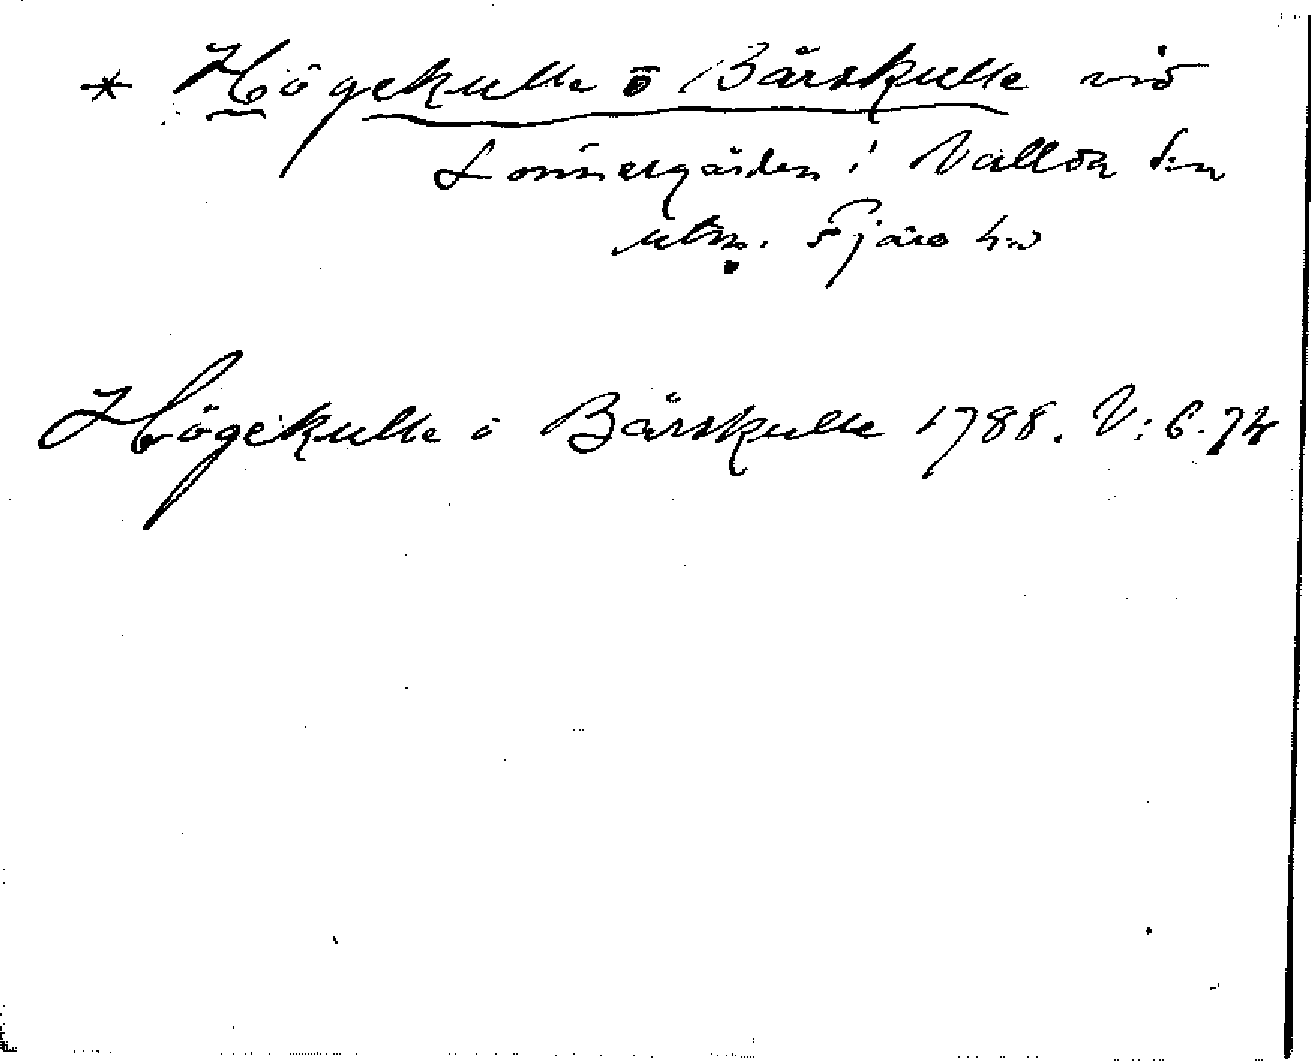 * Högekulle o Bårskulle vid
Lonnergården i Vallda sn
utm. Fjäre hd
Högekulle o Bårskulle 1788. V: 6. 74